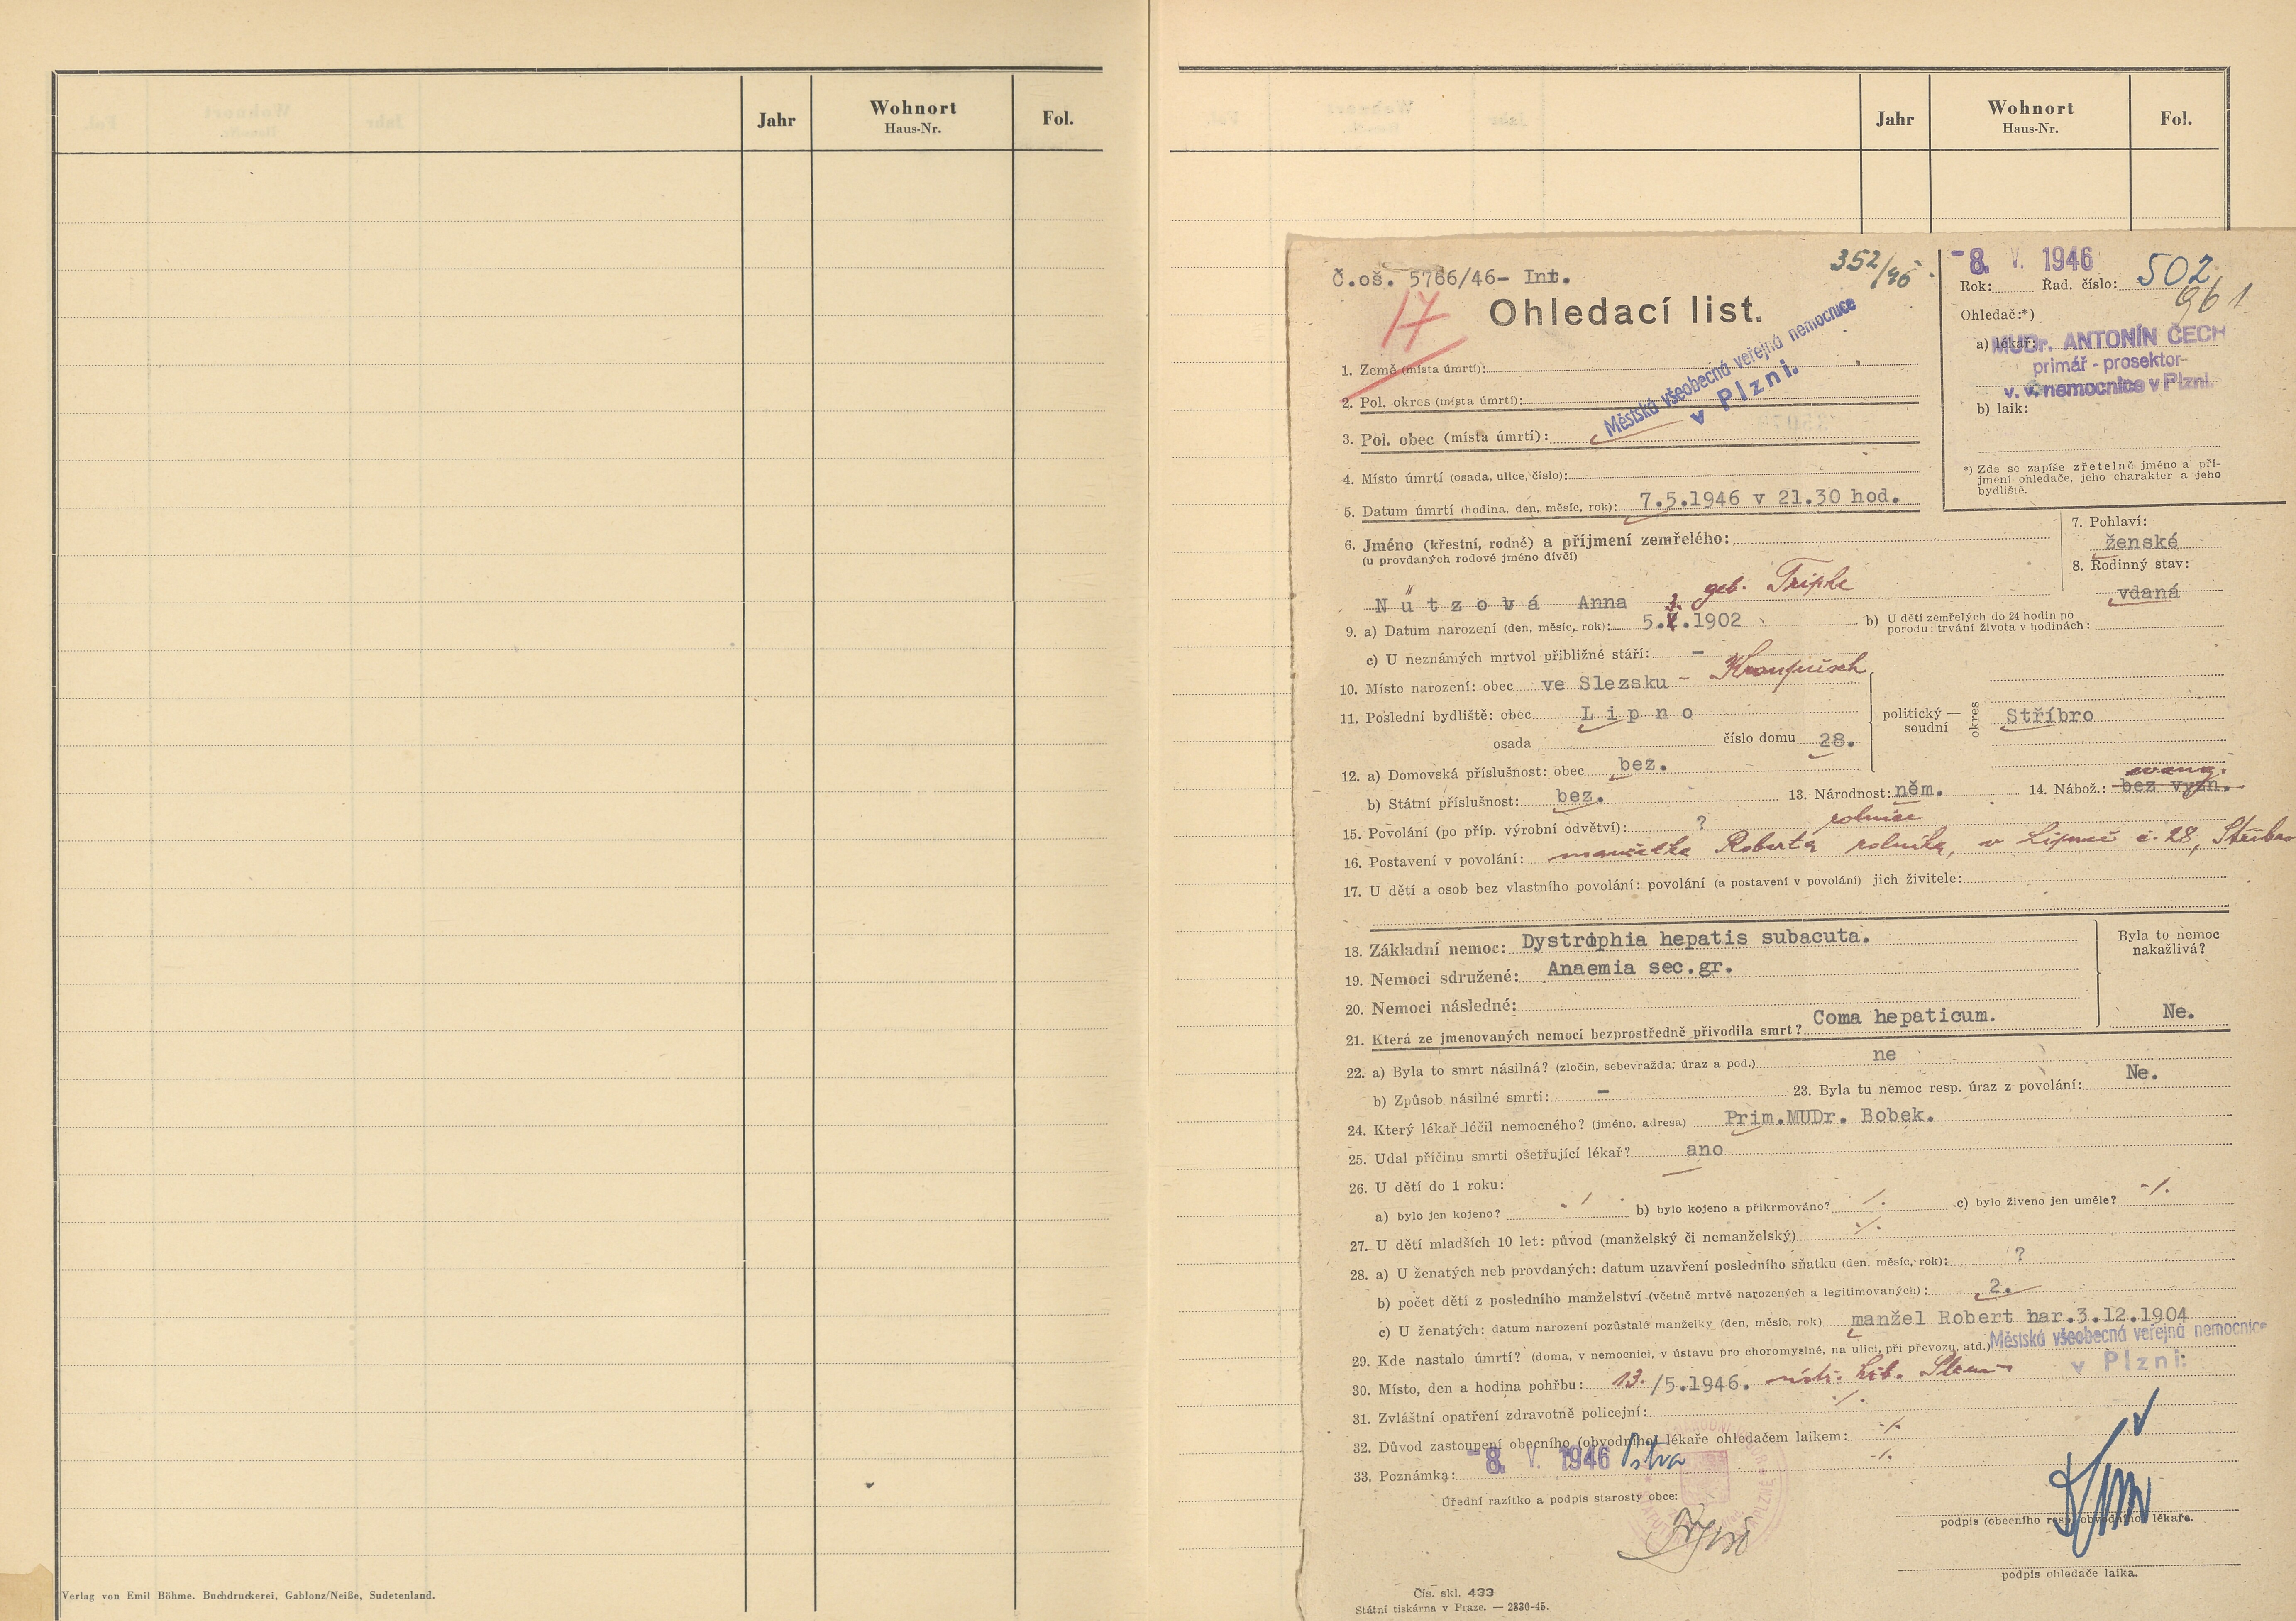 Jahr
Wohnort
Haus-Nr.
Fol.
Verlag von Emil Böhme. Buchdruckerei, Gablonz/Neiße, Sudetenland.
Jahr
Wohnort
Haus-Nr.
Fol.
Č.oš. 5766/46- Int.
352/46
17
Ohledací list.
-8. V. 1946
Rok: Řad. číslo: 502
961
Ohledač:*)
a) lékař: MUDr. ANTONÍN ČECH
primář - prosektor-
v. v. nemocnice v Plzni.
b) laik:
*) Zde se zapíše zřetelně jméno a pří-
jmení ohledače, jeho charakter a jeho
bydliště.
1. Země (místa úmrtí):
2. Pol. okres (místa úmrtí):
Městská všeobecná veřejná nemocnice
v Plzni.
3. Pol. obec (místa úmrtí):
4. Místo úmrtí (osada, ulice, číslo):
5. Datum úmrtí (hodina, den, měsíc, rok): 7.5.1946 v 21.30 hod.
6. Jméno (křestní, rodné) a příjmení zemřelého:
(u provdaných rodové jméno dívčí)
7. Pohlaví:
ženské
8. Rodinný stav:
vdaná
Nützová Anna geb. Triphe
9. a) Datum narození (den, měsíc, rok): 5. 3. 1902
b) U dětí zemřelých do 24 hodin po
porodu: trvání života v hodinách:
c) U neznámých mrtvol přibližné stáří: -
10. Místo narození: obec ve Slezsku -
11. Poslední bydliště: obec Lipno
politický —
soudní
okres
Stříbro
osada číslo domu 28.
12. a) Domovská příslušnost: obec bez.
b) Státní příslušnost: bez. 13. Národnost: něm. 14. Nábož.: bez vyzn. evang.
15. Povolání (po příp. výrobní odvětví): ? rolnice
16. Postavení v povolání: manželka Roberta rolníka, v Lipně č. 28, Stříbro
17. U dětí a osob bez vlastního povolání: povolání (a postavení v povolání) jich živitele:
18. Základní nemoc: Dystrophia hepatis subacuta.
Byla to nemoc
nakažlivá?
Ne.
19. Nemoci sdružené: Anaemia sec.gr.
20. Nemoci následné:
21. Která ze jmenovaných nemocí bezprostředně přivodila smrt? Coma hepaticum.
22. a) Byla to smrt násilná? (zločin, sebevražda, úraz a pod.) ne
b) Způsob násilné smrti: - 23. Byla tu nemoc resp. úraz z povolání: Ne.
24. Který lékař léčil nemocného? (jméno, adresa) Prim.MUDr. Bobek.
25. Udal příčinu smrti ošetřující lékař? ano
26. U dětí do 1 roku:
a) bylo jen kojeno? b) bylo kojeno a přikrmováno? c) bylo živeno jen uměle?
27. U dětí mladších 10 let: původ (manželský či nemanželský)
28. a) U ženatých neb provdaných: datum uzavření posledního sňatku (den, měsíc, rok): ?
b) počet dětí z posledního manželství (včetně mrtvě narozených a legitimovaných): 2.
c) U ženatých: datum narození pozůstalé manželky (den, měsíc, rok) manžel Robert nar.3.12.1904
29. Kde nastalo úmrtí? (doma, v nemocnici, v ústavu pro choromyslné, na ulici, při převozu, atd.) Městská všeobecná veřejná nemocnice
v Plzni.
30. Místo, den a hodina pohřbu: 13./5.1946.
31. Zvláštní opatření zdravotně policejní:
32. Důvod zastoupení obecního (obvodního) lékaře ohledačem laikem:
33. Poznámka: -8. V. 1946
Úřední razítko a podpis starosty obce:
podpis (obecního resp. obvodního) lékaře.
podpis ohledače laika.
Čís. skl. 433
Státní tiskárna v Praze. — 2330-45.